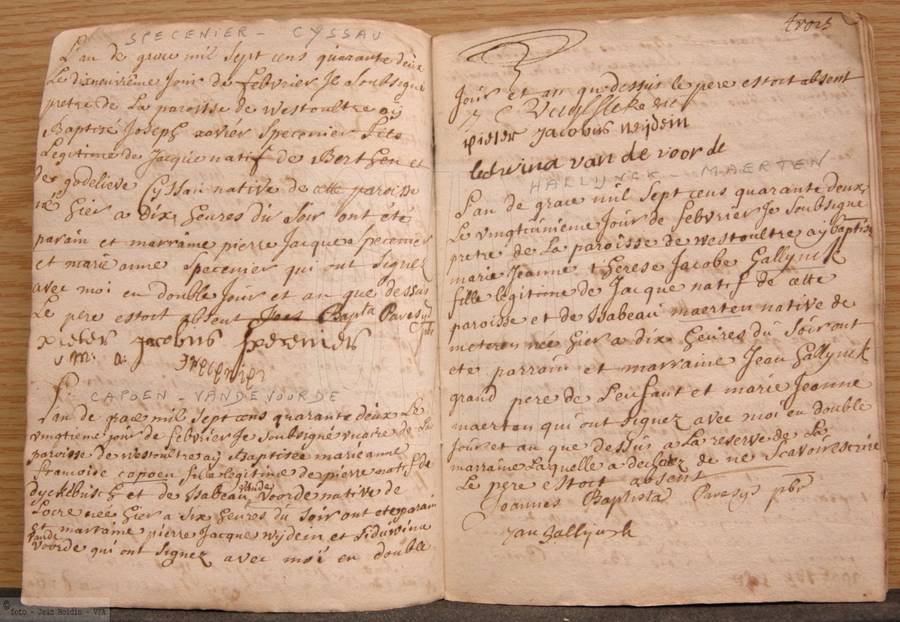 SPECENIER - CYSSAU
L'an de grace mil sept cens quarante deux
Le dixneuvieme jour de febvrier Je soubsigné
pretre de La paroisse de westoultre ay
Baptizé Joseph xavier Specenier fils
Legitime de Jacque natif de Berthen et
de godelieve Cyssau native de cette paroisse
né hier a dix heures du soir ont été
parain et marraine pierre Jacque specenier
et marie anne specenier qui ont signez
avec moi en double Jour et an que dessus
Le pere estoit absent Joes Bapta Paresys pbr
pieter jacobus specenier
m. a. specenier
CAPOEN - VANDEVOORDE
L'an de grace mil sept cens quarante deux Le
vingtieme jour de febvrier Je soubsigné vicaire de La
paroisse de westoultre ay Baptisée marie anne
francoise capoen fille legitime de pierre natif de
dyckelbusch et de Isabeau vande voorde native de
Locre née hier a six heures du soir ont ete parain
et marraine pierre Jacque wydein et Liduwina
vande voorde qui ont signez avec moi en double
trois
Jour et an que dessus le pere estoit absent
pieter jacobus wijdein
ledwina van de voorde
HALLIJNCK - MAERTEN
L'an de grace mil sept cens quarante deux
Le vingtunieme Jour de febvrier Je soubsigné
pretre de La paroisse de westoultre ay baptizé
marie Jeanne therese Jacobe Hallynck
fille legitime de Jacque natif de cette
paroisse et de Isabeau maerten native de
meteren née hier a dix heures du soir ont
ete parrain et marraine Jean Hallynck
grand pere de L'enfant et marie Jeanne
maerten qui ont signez avec moi en double
Jour et an que dessus a La reserve de La
marraine Laquelle a declaré de ne scavoir escrire
Le pere estoit absent
Joannes Baptista Paresys pbr
Jan Hallynck
© foto - Jean Boidin - VVA